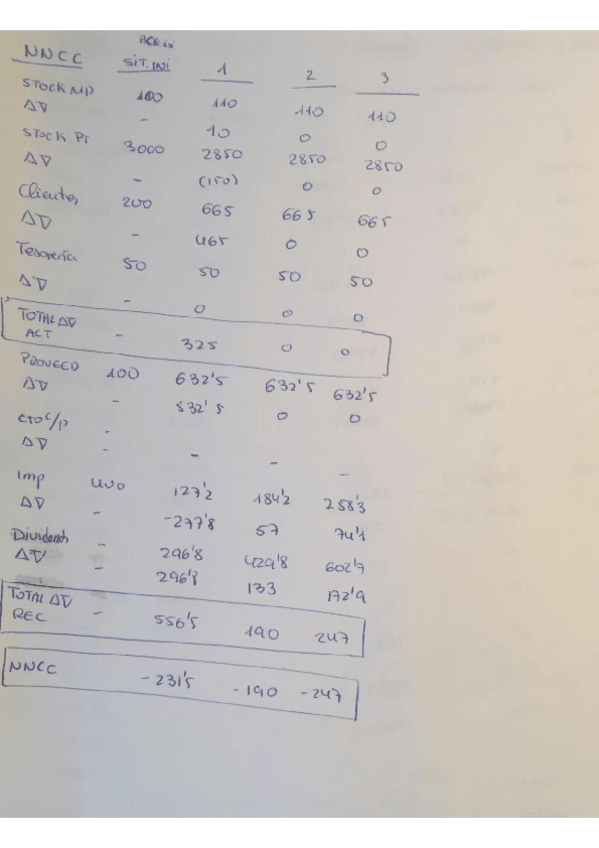 BCE ini
NNCC SIT. INI 1 2 3
STOCK MP 100 110 110 110
Δ∇ - 10 0 0
STOCK PT 3000 2850 2850 2850
Δ∇ - (150) 0 0
Clientes 200 665 665 665
Δ∇ - 465 0 0
Tesorería 50 50 50 50
Δ∇ - 0 0 0
TOTAL Δ∇
ACT - 325 0 0
PROVEED 100 632'5 632'5 632'5
Δ∇ - 532'5 0 0
CTO C/P - - - -
Δ∇ -
Imp 400 127'2 184'2 258'3
Δ∇ - -277'8 57 74'1
Dividendos - 296'8 429'8 602'7
Δ∇ - 296'8 133 172'9
TOTAL Δ∇
REC - 556'5 190 247
NNCC -231'5 -190 -247